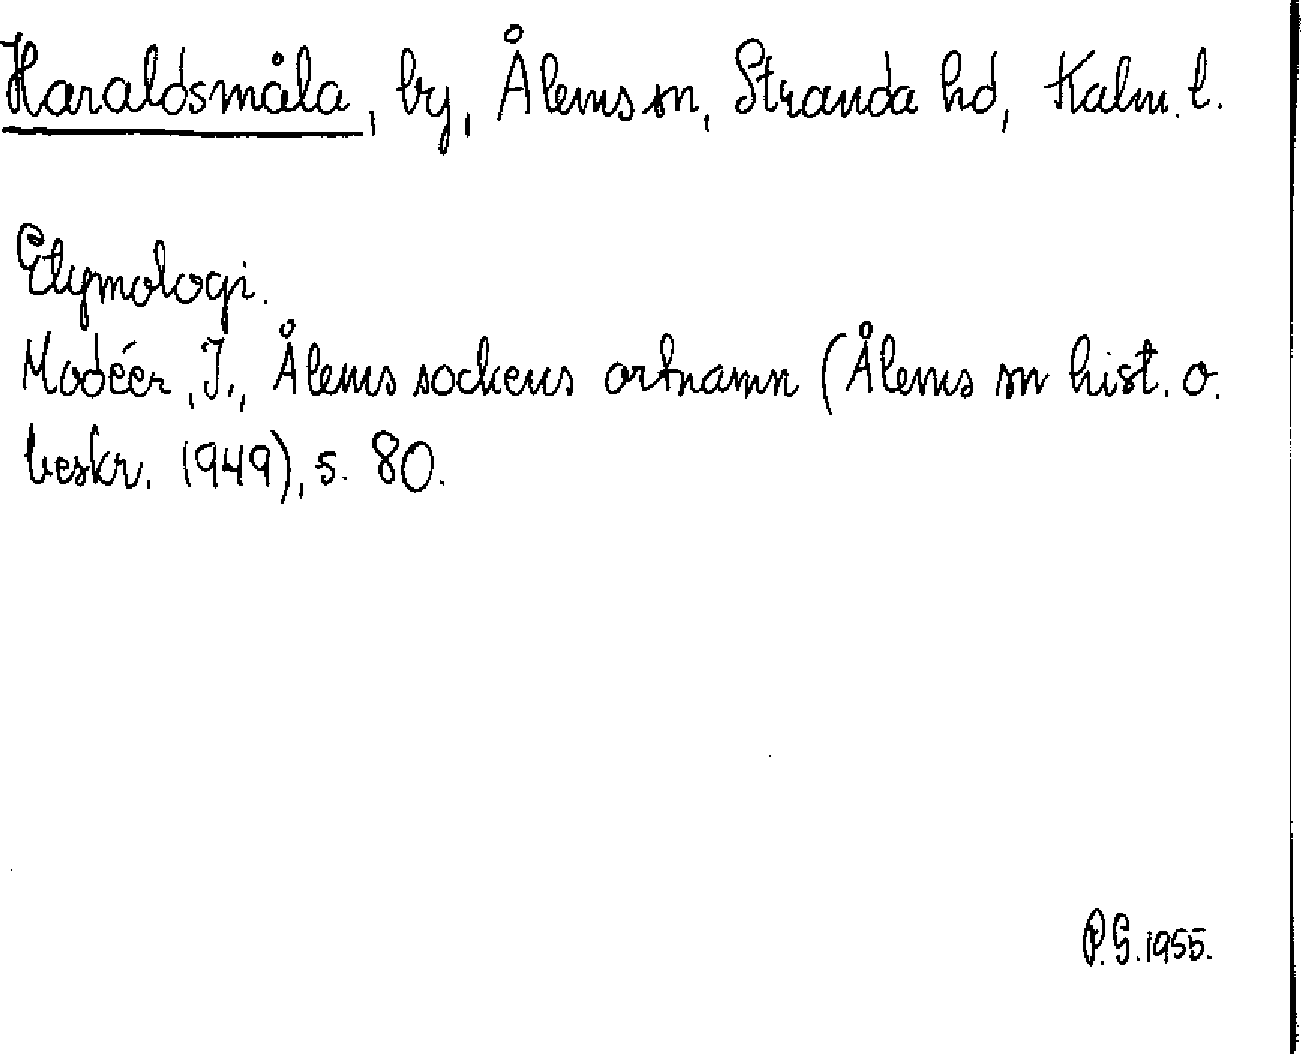 Haraldsmåla, by, Ålems sn, Stranda hd, Kalm. l.
Etymologi.
Modéer, I., Ålems sockens ortnamn (Ålems sn hist. o.
beskr. 1949), s. 80.
P.G. 1955.